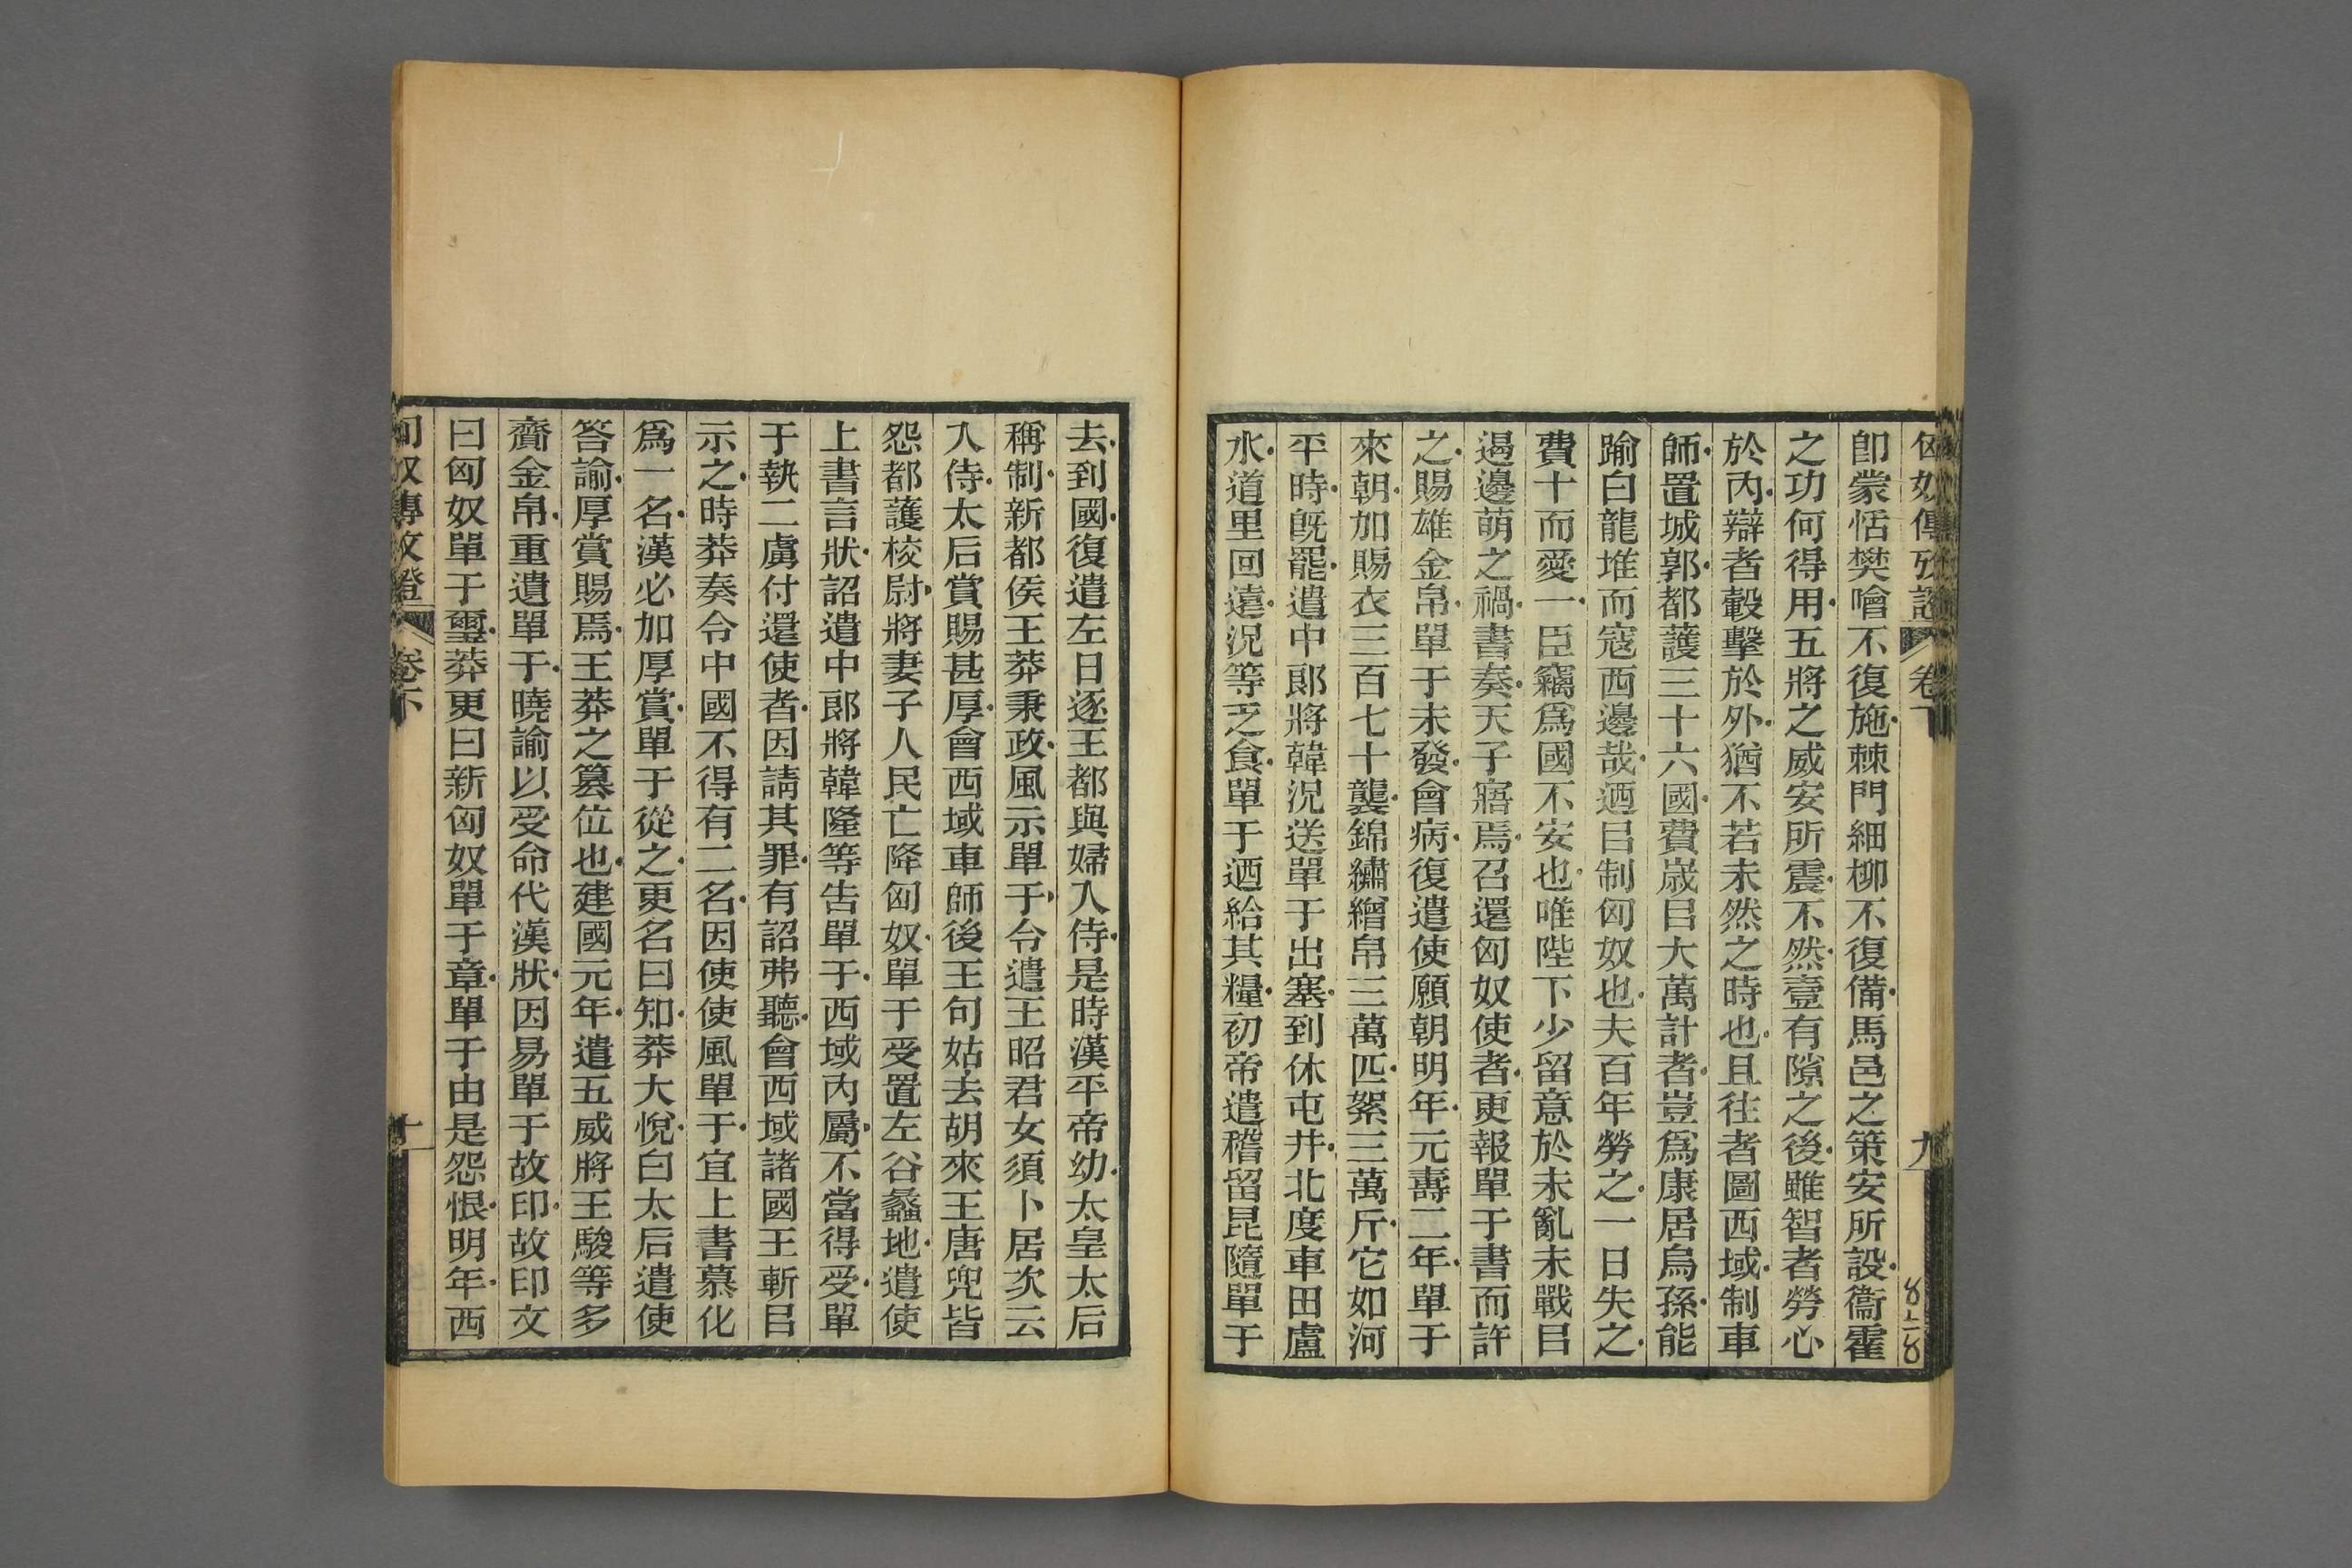 匈奴傳攷證 卷下 九
卽蒙恬樊噲不復施棘門細柳不復備馬邑之策安所設衞霍
之功何得用五將之威安所震不然壹有隙之後雖智者勞心
於內辯者轂擊於外猶不若未然之時也且往者圖西域制車
師置城郭都護三十六國費歲㠯大萬計者豈爲康居烏孫能
踰白龍堆而寇西邊哉迺㠯制匈奴也夫百年勞之一日失之
費十而愛一臣竊爲國不安也唯陛下少留意於未亂未戰㠯
遏邊萌之禍書奏天子寤焉召還匈奴使者更報單于書而許
之賜雄金帛單于未發會病復遣使願朝明年元壽二年單于
來朝加賜衣三百七十襲錦繡繒帛三萬匹絮三萬斤它如河
平時旣罷遣中郞將韓況送單于出塞到休屯井北度車田盧
水道里回遠況等乏食單于迺給其糧初帝遣稽留昆隨單于
去到國復遣左日逐王都與婦入侍是時漢平帝幼太皇太后
稱制新都侯王莽秉政風示單于令遣王昭君女須卜居次云
入侍太后賞賜甚厚會西域車師後王句姑去胡來王唐兜皆
怨都護校尉將妻子人民亡降匈奴單于受置左谷蠡地遣使
上書言狀詔遣中郞將韓隆等告單于西域內屬不當得受單
于執二虜付還使者因請其罪有詔弗聽會西域諸國王斬㠯
示之時莽奏令中國不得有二名因使使風單于宜上書慕化
爲一名漢必加厚賞單于從之更名曰知莽大悅白太后遣使
答諭厚賞賜焉王莽之簒位也建國元年遣五威將王駿等多
齎金帛重遺單于曉諭以受命代漢狀因易單于故印故印文
曰匈奴單于璽莽更曰新匈奴單于章單于由是怨恨明年西
匈奴傳攷證 卷下 十